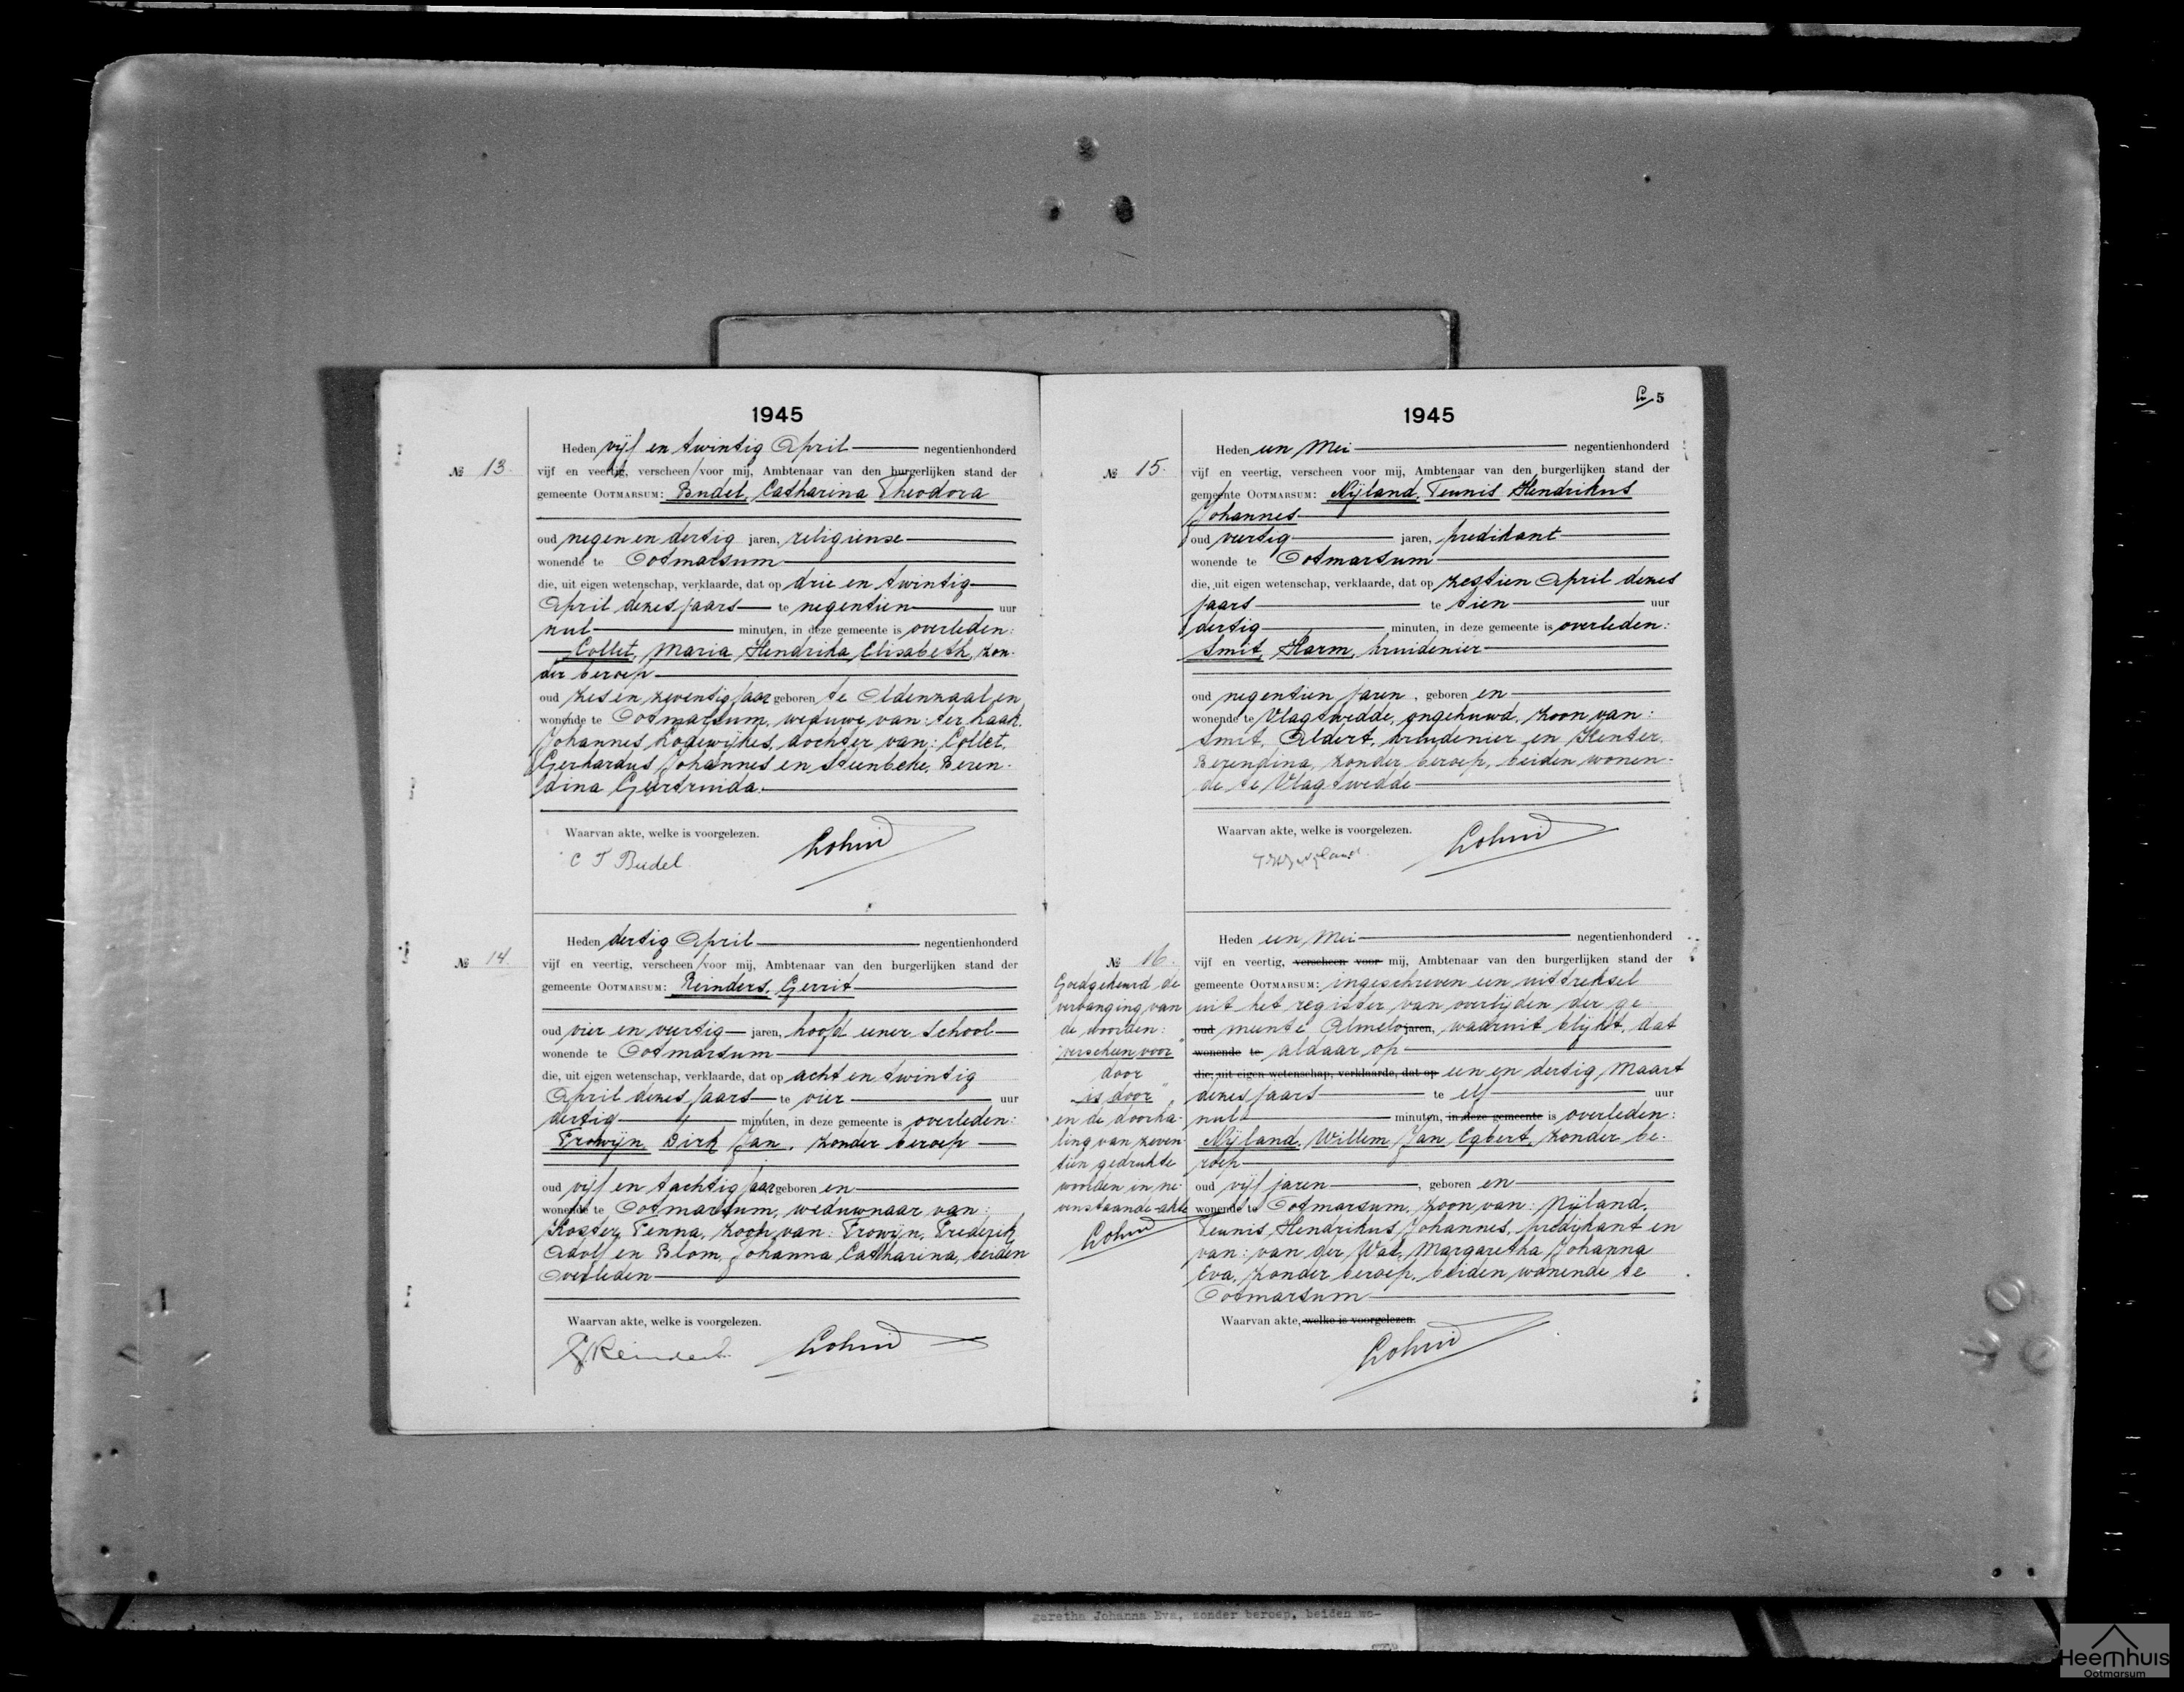 1945
Heden vijf en twintig April negentienhonderd
№ 13.
vijf en veertig, verscheen voor mij, Ambtenaar van den burgerlijken stand der
gemeente OOTMARSUM: Budel, Catharina Theodora
oud negen en dertig jaren, religieuse
wonende te Ootmarsum
die, uit eigen wetenschap, verklaarde, dat op drie en twintig
April dezes jaars te negentien uur
nul minuten, in deze gemeente is overleden:
Collet, Maria Hendrika Elisabeth, zon-
der beroep
oud zes en zeventig jaar geboren te Oldenzaal en
wonende te Ootmarsum, weduwe van: ter Haak,
Johannes Lodewijkes, dochter van: Collet,
Gerhardus Johannes en Steenbeke, Beren-
dina Geertruida.
Waarvan akte, welke is voorgelezen.
C T Budel
Heden dertig April negentienhonderd
№ 14.
vijf en veertig, verscheen voor mij, Ambtenaar van den burgerlijken stand der
gemeente OOTMARSUM: Reinders, Gerrit
oud vier en veertig jaren, hoofd eener school
wonende te Ootmarsum
die, uit eigen wetenschap, verklaarde, dat op acht en twintig
April dezes jaars te vier uur
dertig minuten, in deze gemeente is overleden:
Frowijn, Dirk Jan, zonder beroep
oud vijf en tachtig jaar geboren en
wonende te Ootmarsum, weduwnaar van:
Koster, Fenna, zoon van: Frowijn, Frederik
Adolf en Blom, Johanna Catharina, beiden
overleden
Waarvan akte, welke is voorgelezen.
G. Reinders
5
1945
Heden een Mei negentienhonderd
№ 15.
vijf en veertig, verscheen voor mij, Ambtenaar van den burgerlijken stand der
gemeente OOTMARSUM: Nijland, Teunis Hendrikus
Johannes
oud veertig jaren, predikant
wonende te Ootmarsum
die, uit eigen wetenschap, verklaarde, dat op zestien April dezes
jaars te tien uur
dertig minuten, in deze gemeente is overleden:
Smit, Harm, kruidenier
oud negentien jaren, geboren en
wonende te Vlagtwedde, ongehuwd, zoon van:
Smit, Aldert, kruidenier en Henter,
Berendina, zonder beroep, beiden wonen-
de te Vlagtwedde
Waarvan akte, welke is voorgelezen.
T.H.J. Nijland
Heden een Mei negentienhonderd
№ 16.
vijf en veertig, verscheen voor mij, Ambtenaar van den burgerlijken stand der
gemeente OOTMARSUM: ingeschreven een uittreksel
uit het register van overlijden der ge-
oud meente Almelo jaren, waaruit blijkt, dat
wonende te aldaar op
die, uit eigen wetenschap, verklaarde, dat op een en dertig Maart
dezes jaars te elf uur
nul minuten, in deze gemeente is overleden:
Nijland, Willem Jan Egbert, zonder be-
roep
oud vijf jaren, geboren en
wonende te Ootmarsum, zoon van: Nijland,
Teunis Hendrikus Johannes, predikant en
van: van der Wal, Margaretha Johanna
Eva, zonder beroep, beiden wonende te
Ootmarsum
Waarvan akte, welke is voorgelezen.
Goedgekeurd de
vervanging van
de woorden:
"verscheen voor"
door
"is door",
en de doorha-
ling van zeven-
tien gedrukte
woorden in ne-
venstaande akte
garetha Johanna Eva, zonder beroep, beiden wo-
Heemhuis
Ootmarsum